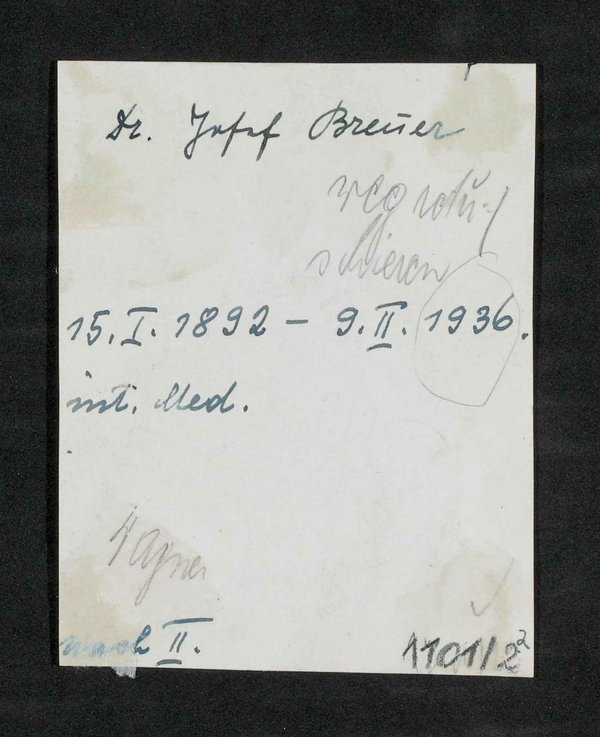 Dr. Josef Breuer
weg retu-
schieren
15.I. 1892 – 9.II. 1936.
int. Med.
nach II.
1101/2²